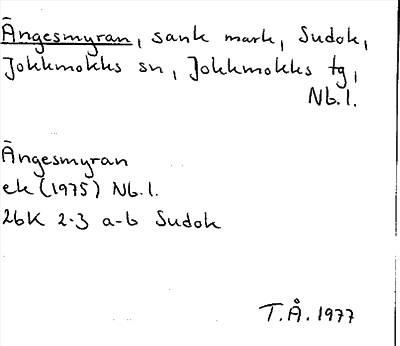 Ängesmyran, sank mark, Sudok,
Jokkmokks sn, Jokkmokks tg,
Nb.l.
Ängesmyran
ek (1975) Nb.l.
26K 2-3 a-b Sudok
T.Å. 1977